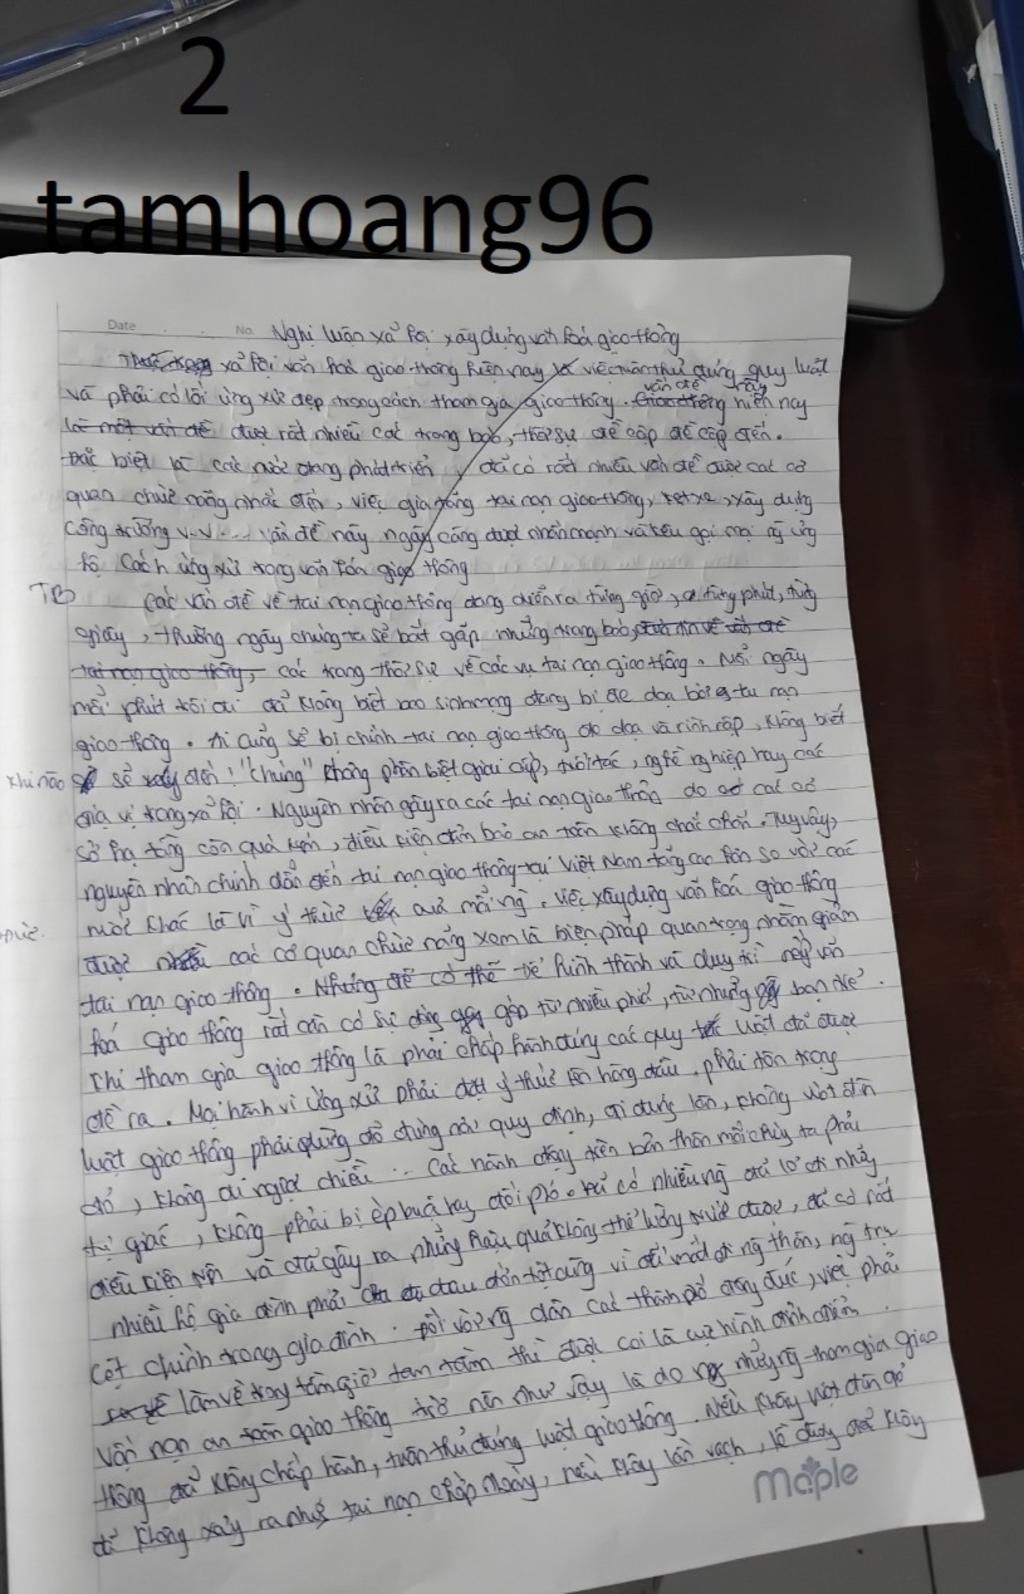 2
tamhoang96
Date No. Nghị luận xã hội xây dựng văn hoá giao thông
Thực trạng xã hội văn hoá giao thông hiện nay là việc tuân thủ đúng quy luật
và phải có lối ứng xử đẹp trong cách tham gia giao thông. Giao thông vấn đề này hiện nay
là một vấn đề được rất nhiều các trang báo, thời sự đề cập đề cập đến.
Đặc biệt là các nước đang phát triển, đã có rất nhiều vấn đề được các cơ
quan chức năng nhắc đến, việc gia tăng tai nạn giao thông, kẹt xe, xây dựng
công trường v.v... vấn đề này ngày càng được nhấn mạnh và kêu gọi mọi ng ủng
hộ cách ứng xử trong văn hóa giao thông
TB Các vấn đề về tai nạn giao thông đang diễn ra từng giờ, từng phút, từng
giây, thường ngày chúng ta sẽ bắt gặp những trang báo, đưa tin về vấn đề
tai nạn giao thông, các trang thời sự về các vụ tai nạn giao thông. Mỗi ngày
mỗi phút trôi đi đã không biết bao sinh mạng đang bị đe doạ bởi tai nạn
giao thông. Ai cũng sẽ bị chính tai nạn giao thông đe doạ và rình rập, không biết
khi nào sẽ xảy đến! "Chúng" không phân biệt giai cấp, tuổi tác, nghề nghiệp hay các
địa vị trong xã hội. Nguyên nhân gây ra các tai nạn giao thông do các cơ
sở hạ tầng còn quá kém, điều kiện đảm bảo an toàn không chắc chắn. Tuy vậy,
nguyên nhân chính dẫn đến tai nạn giao thông tại Việt Nam tăng cao hơn so với các
nước khác là vì ý thức của mỗi ng. Việc xây dựng văn hoá giao thông
được các cơ quan chức năng xem là biện pháp quan trọng nhằm giảm
tai nạn giao thông. Nhưng để có thể Để hình thành và duy trì nếp văn
hoá giao thông rất cần có sự đóng góp từ nhiều phía, từ những bạn trẻ.
Khi tham gia giao thông là phải chấp hành đúng các quy luật đã được
đề ra. Mọi hành vi ứng xử phải đặt ý thức lên hàng đầu. phải tôn trọng
luật giao thông phải dừng đỗ đúng nơi quy định, đi đúng làn, không vượt đèn
đỏ, không đi ngược chiều... Các hành động trên bản thân mỗi chúng ta phải
tự giác, không phải bị ép buộc hay đối phó. có nhiều ng đã lơ đi những
điều kiện trên và đã gây ra những hậu quả không thể lường trước được, đã có rất
nhiều hộ gia đình phải đau đớn tột cùng vì đã mất đi ng thân, ng trụ
cột chính trong gia đình. Đối với ng dân các thành phố đông đúc, việc phải
làm về trong tầm giờ tan tầm thì được coi là cực hình đỉnh điểm.
Vấn nạn an toàn giao thông trở nên như vậy là do những ng tham gia giao
thông đã không chấp hành, tuân thủ đúng luật giao thông. Nếu không vượt đèn đỏ
đã không xảy ra những tai nạn chập choạng, nếu không lấn vạch, lề đường đã không
maple